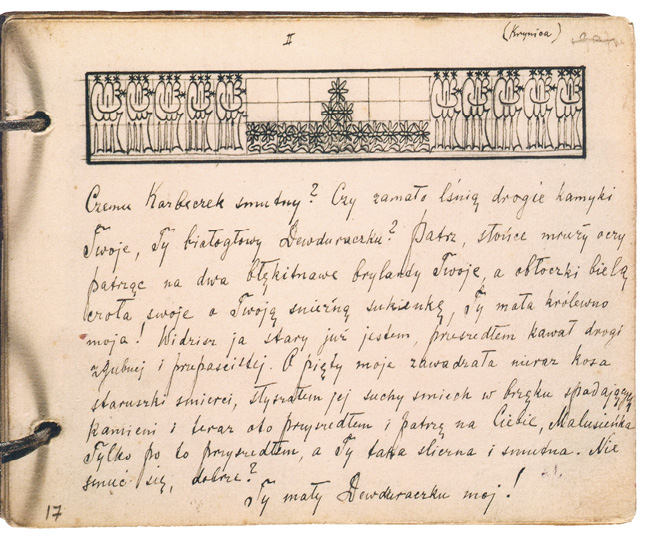 II
(Krynica)
Czemu Karbeczek smutny? Czy zamało lśnią drogie kamyki
Twoje, Ty białogłowy Dewduraczku? Patrz, słońce mruży oczy
patrząc na dwa błękitnawe brylanty Twoje, a obłoczki bielą
czoła swoje o Twoją śnieżną sukienkę, Ty mała królewno
moja! Widzisz ja stary już jestem, przeszedłem kawał drogi
zgubnej i przepaścistej. O pięty moje zawadzała nieraz kosa
staruszki śmierci, słyszałem jej suchy śmiech w brzęku spadających
kamieni i teraz oto przyszedłem i patrzę na Ciebie, Malusieńka
Tylko po to przyszedłem, a Ty taka śliczna i smutna. Nie
smuć się, dobrze?
Ty mały Dewduraczku moj!
17